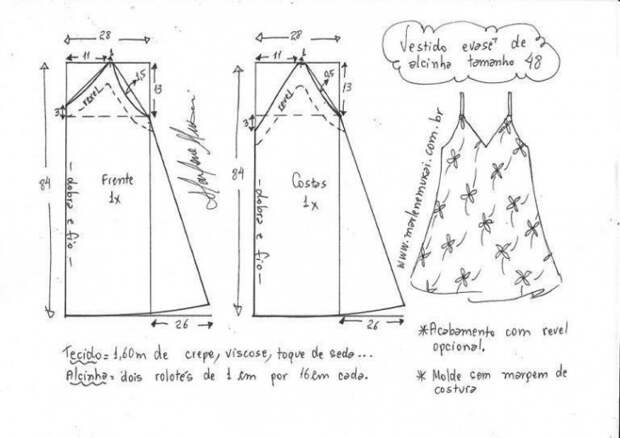 28
11
1
1,5
13
revel
3
84
Frente
1x
- dobra e fio -
26
Marlene Mukai
28
11
1
0,5
13
revel
3
84
Costas
1x
- dobra e fio -
26
Vestido evasê de
alcinha tamanho 48
www.marlenemukai.com.br
*Acabamento com revel
opcional.
* Molde sem margem de
costura
Tecido= 1,60m de crepe, viscose, toque de seda...
Alcinha= dois rolotês de 1cm por 16cm cada.